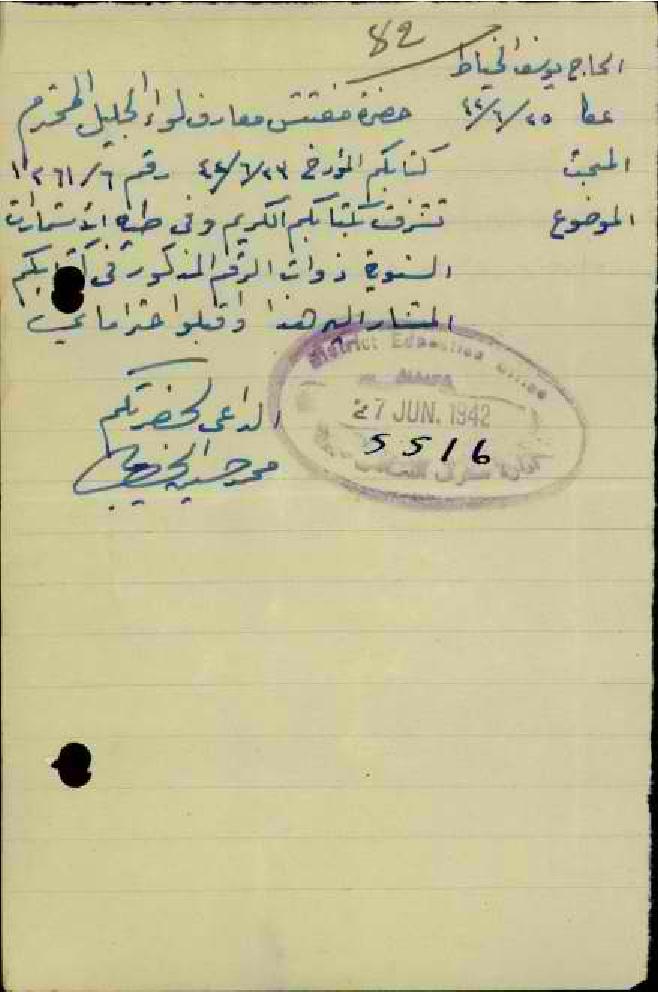 82
الحاج يوسف الخياط
عكا ٢٥/٦/٤٢ حضرة مفتش معارف لواء الجليل المحترم
المبحث كتابكم المؤرخ ٢٣/٦/٤٢ رقم ٦/٢٦١
الموضوع تشرفت بكتابكم الكريم وفي طيه الاستمارات
السنوية ذوات الرقم المذكور في كتابكم
المشار اليه هذا واقبلوا احتراماتي
District Education Office
27 JUN. 1942
5516
الداعي لحضرتكم
محمد